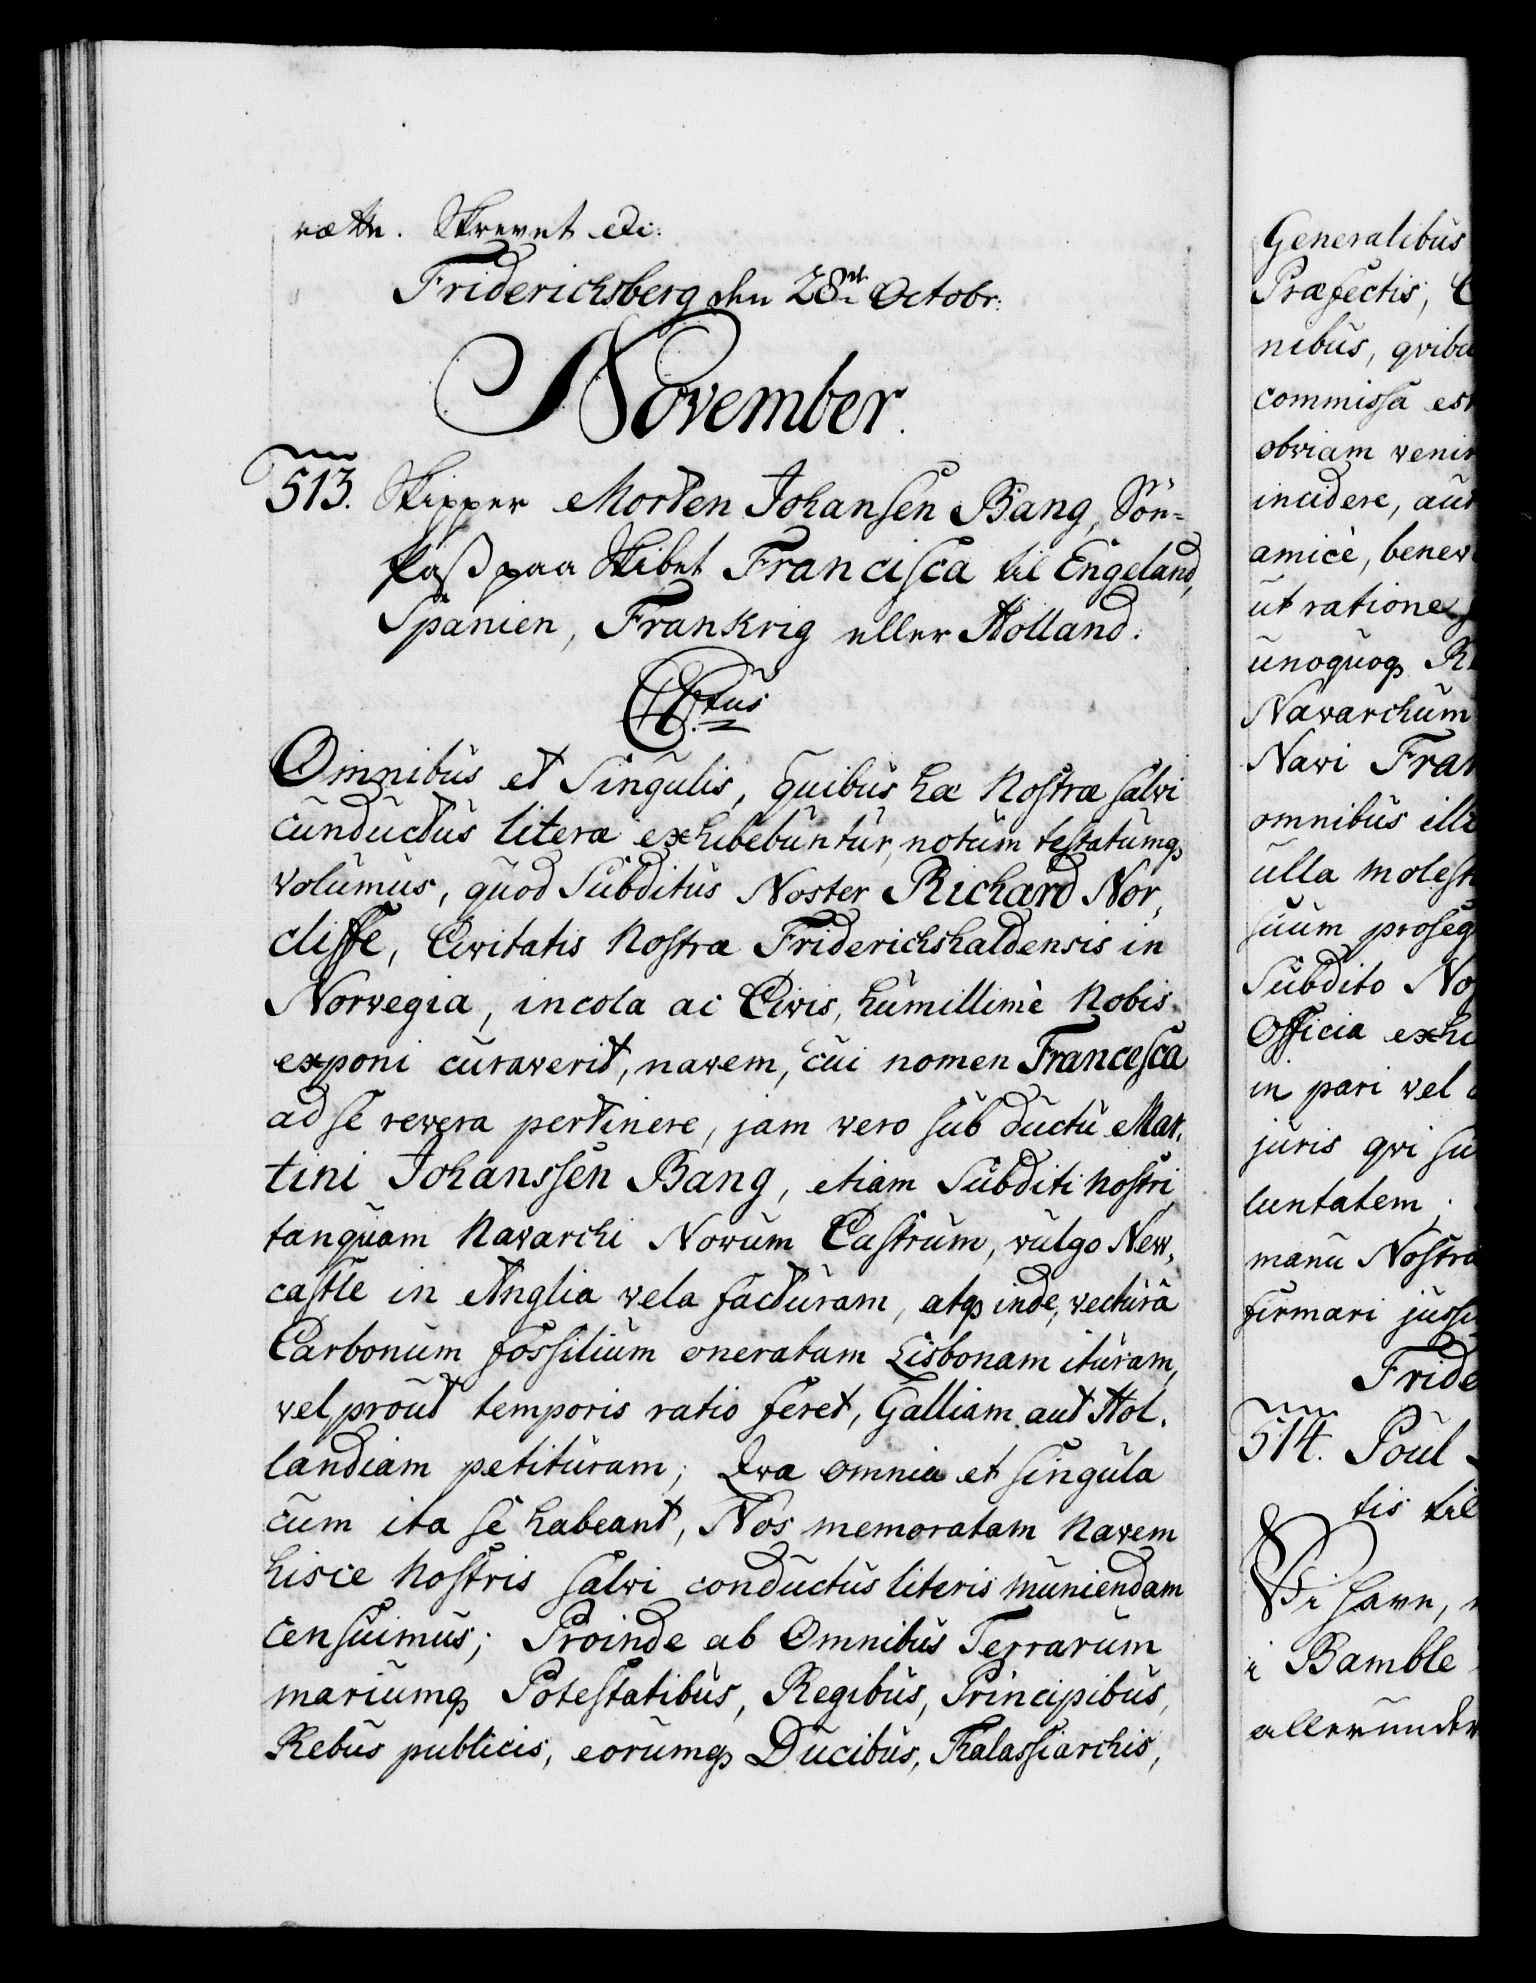 rætte. Skrevet etc:
Friderichsberg den 28de Octobr:
November.
513. Skipper Morten Johansen Bang, Söe-
Pass paa Skibet Francisca til Engeland,
Spanien, Frankrig eller Holland.
Omnibus et Singulis, quibus hæ Nostræ salvi
cunductus literæ exhibebuntur, notum testatumqs
volumus, quod Subditus Noster Richard Nor,
cliffe, Civitatis Nostræ Friderichshaldensis in
Norvegia, incola ac Civis, humillimè Nobis
exponi curaverit, navem, cui nomen Francesca
ad se revera pertinere, jam vero sub ductu Mar,
tini Johanssen Bang, etiam Subditi Nostri
tanquam Navarchi Novum Castrum, vulgo New,
castle in Anglia vela facturam, atqs inde, vectura
Carbonum fossilium oneratam Lisbonam ituram,
vel prout temporis ratio feret, Galliam aut Hol,
landiam petituram; Qva omnia et singula
cum ita se habeant, Nos memoratam Navem
hisce Nostris salvi conductus literis muniendam
censuimus; Proinde ab Omnibus Terrarum
mariumqs Potestatibus, Regibus, Principibus,
Rebus publicis, eorumqs Ducibus, Thalassiarchis,
Generalibus
Præfectis, C
nibus, qvibu
commissa es
obviam veni
incidere, aut
amicè, benev
ut ratione
unoquoqs R
Navarchum
Navi Fran
omnibus ill
ulla molest
suum proseq
Subdito No
Officia exhi
in pari vel
juris qvi su
luntatem.
manu Nostra
firmari jussi
Fride
514. Poul
tis til
Vi have,
i Bamble
allerunder